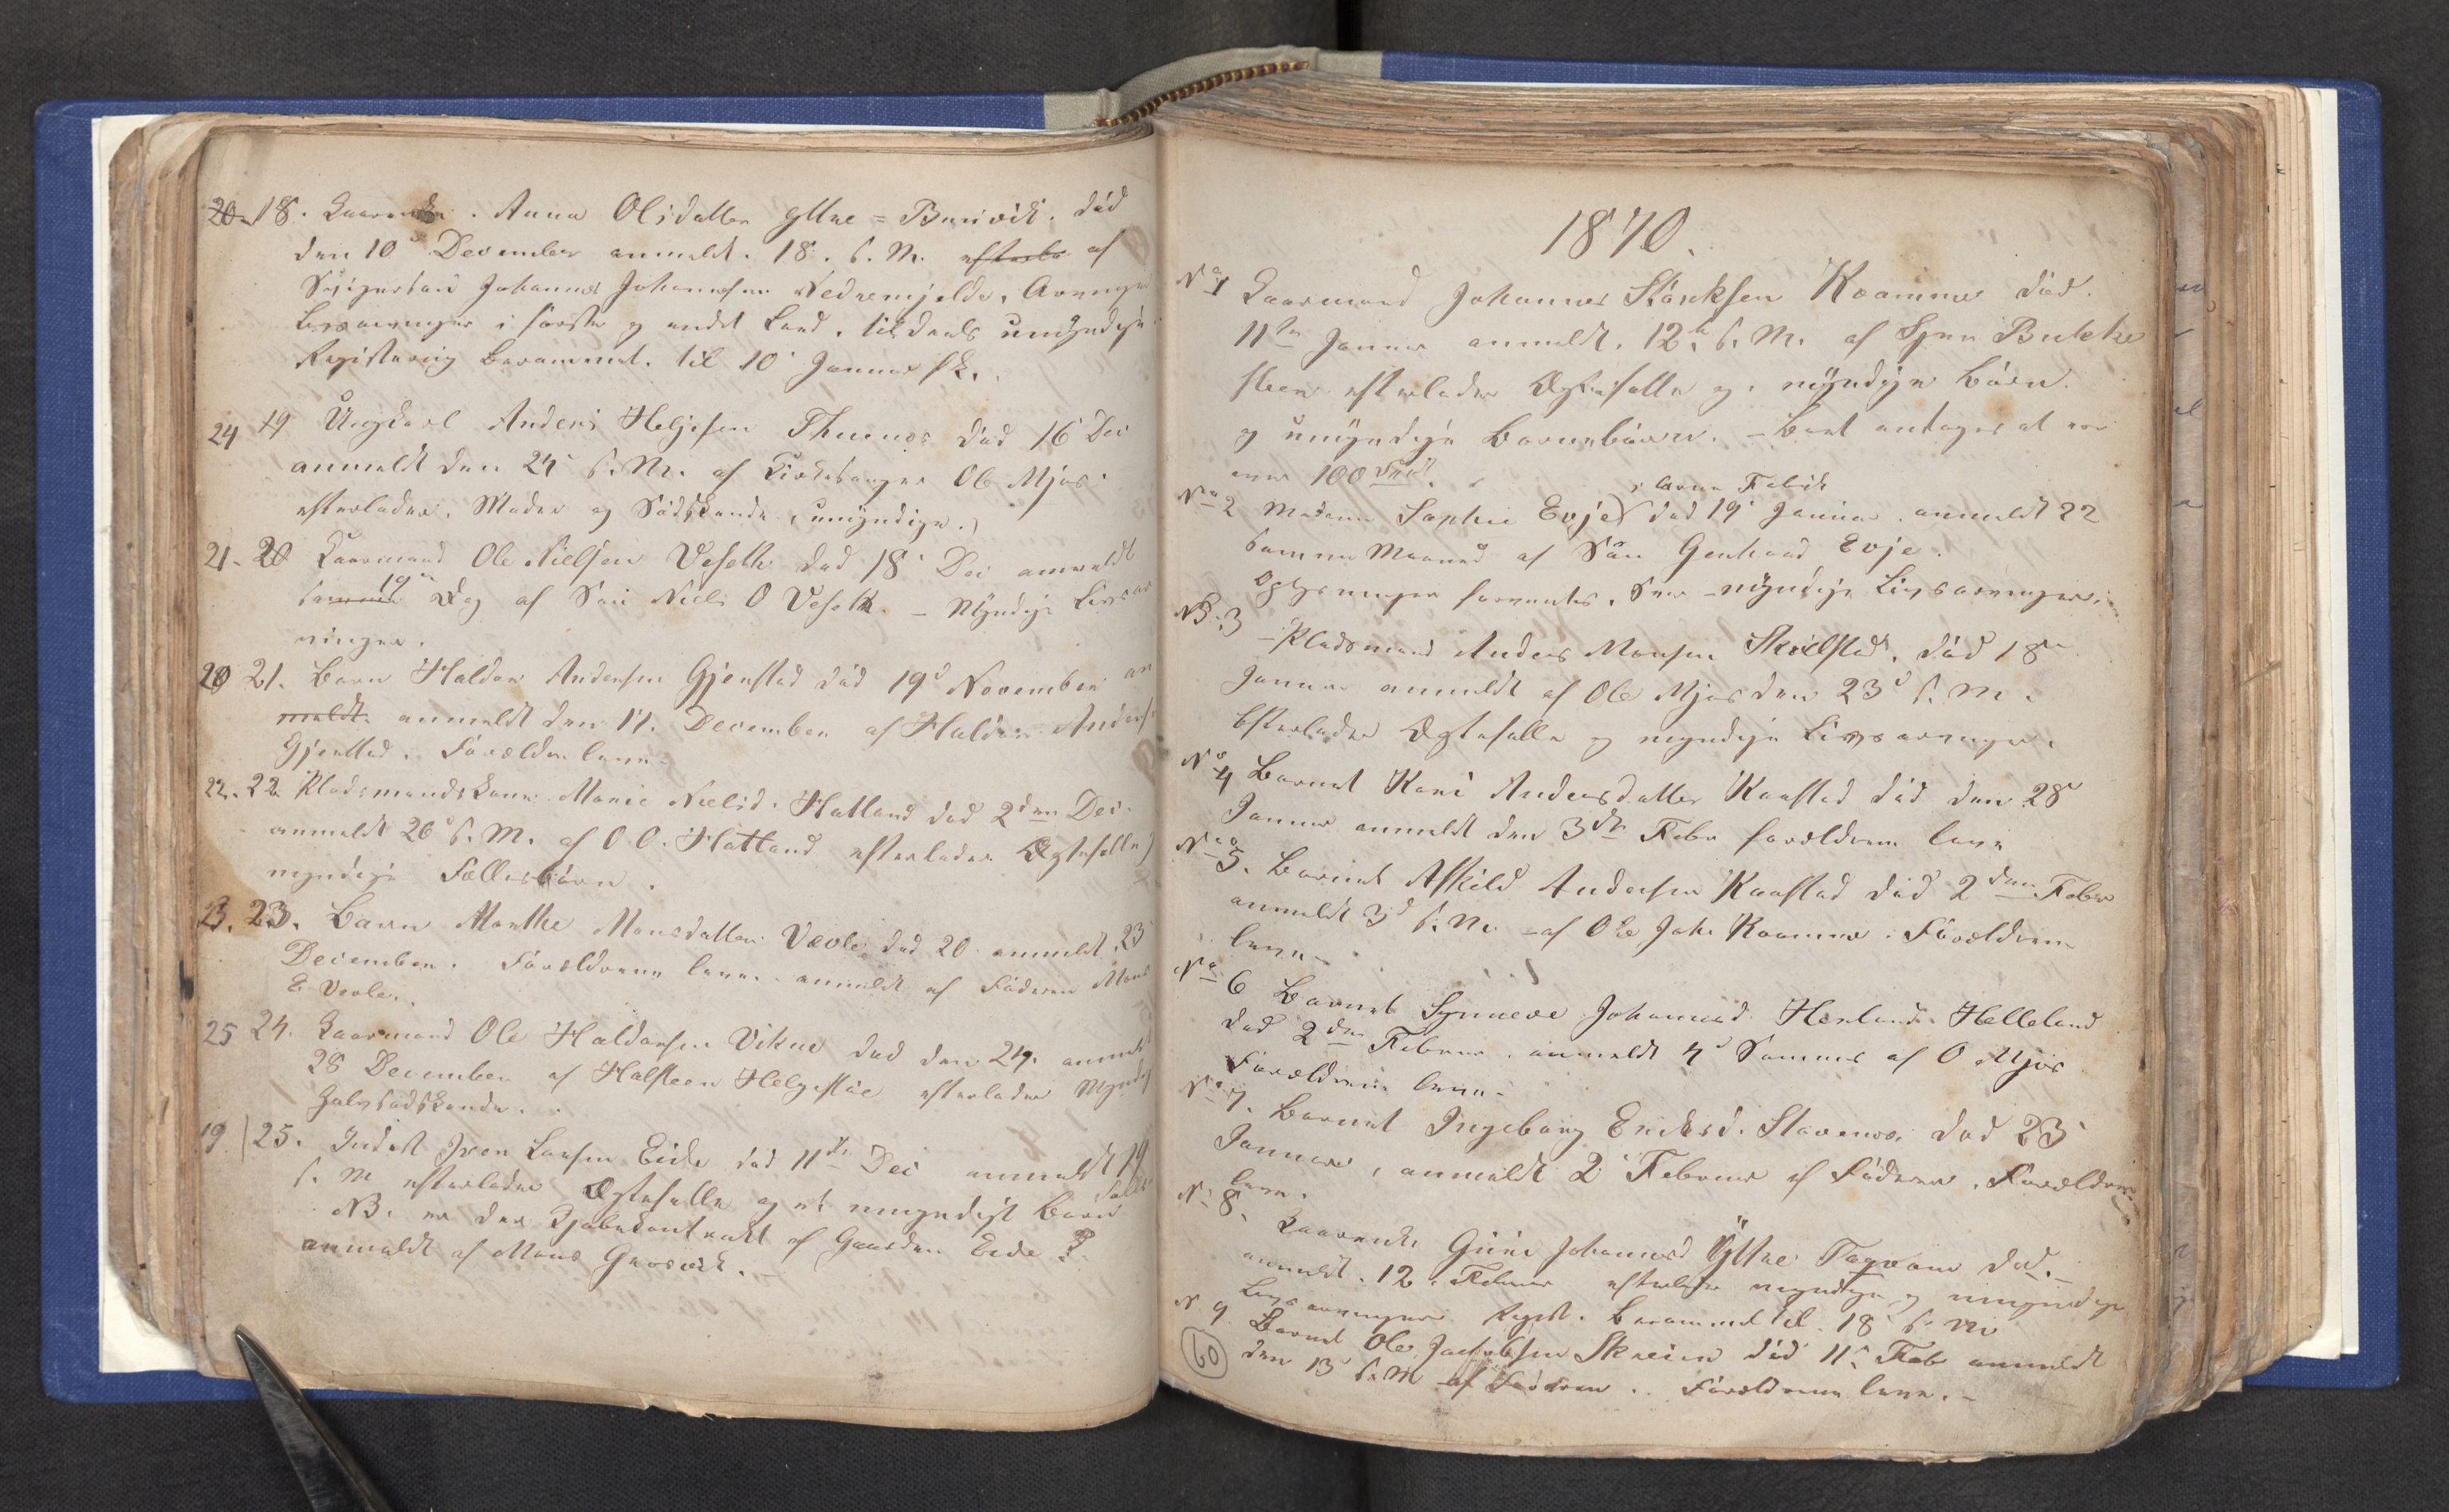 ~~20~~ 18. Kaarenke. Anna Olsdatter Yttre = Bruvik. død
den 10d December anmeldt. 18. s. M. ~~efterla~~ af
Svigersøn Johannes Johannesen Nedremjelde, Arvinger
Livsarvinger i første og andet Leed, tildeels umyndige
Registering berammet. til 10d Januar
24 19 Ungkarl Anders Helgesen Thuenes død 16d Dec
anmeldt den 24d s. M. af Kirkesanger Ole Mjøs.
efterlader. Moder og Sødskende (umyndige.)
21. 20 Kaarmand Ole Nielsen Veseth død 18d Dec anmeldt
19d Dag af Søn Niels O Veseth. - Myndige Livsar
vinger.
20 21. Barn Haldor Andersen Gjerstad død 19d November an
~~meldt~~ anmeldt den 17. December af Haldor Anders.
Gjerstad. Forældre leve.
22. 22. Pladsmandskone Marie Nielsd. Hatland død 2den Dec.
anmeldt 20d s. M. af O O. Hatland efterlader Ægtefælle,
myndige Fællesbørn.
23. 23. Barn Marthe Monsdatter Vævle død 20 anmeldt 23d
December. Forældrene leve. anmeldt af Faderen Mons
E Vevle.
25 24. Kaarmand Ole Haldorsen Vikne død den 24. anmeldt
28 December af Halsteen Helgesøe efterlader Myndig
Halvsødskende.
19 25. Inderst Iver Larsen Eide død 11te Dec anmeldt 19
s. M efterlader Ægtefælle og et umyndigt Barn
NB. er der Kjøbekontrakt af Gaarden Eide?
anmeldt af Mons Grosvik.
1870.
No 1 Kaarmand Johannes Størksen Kvamme død.
11te Januar anmeldt. 12te s. M. af Sjur Bukke
steen efterlader Ægtefælle og myndige Børn.
og umyndige Børnebørn. - Boet antages at
over 100
No 2 Madame Sophie Evje død 19d Januar. anmeldt 22
i Arne Fabrik
samme Maaned af Søn Gerhard Evje.
Oplysninger forventes. - myndige Livsarvinger.
No 3 - Pladsmand Anders Monsen Skielstad, død 18de
Januar anmeldt af Ole Mjøs den 23d s. M.
Efterlader Ægtefælle og myndige Livsarvinger.
No 4 Barnet Kari Andersdatter Raastad død den 28d
Januar anmeldt den 3die Febr forældrene leve
No 5. Barnet Askild Andersen Raastad død 2den Febr
anmeldt 3d s. M. af Ole Joh. Kvamme. Forældrene
leve -
No 6 Barnet Synneve Johannesd. Herland Helleland
død 2den Februar. anmeldt 4d Sammes af O Mjøs
Forældrene leve -
No 7. Barnet Ingeborg Eriksd. Stavenes død 23d
Januar, anmeldt 2d Februar af Faderen. Forældrene
leve.
N. 8. Kaarenke Guri Johannesd Yttre Tøqvam død. -
anmeldt. 12. Februar efterlader myndige og umyndige
Livsarvinger. Regist. berammet til 18d s. M
N 9. Barnet Ole Jacobsen Skreien død 11d Feb anmeldt
den 13d s. M af Faderen.. Forældrene leve. -
60